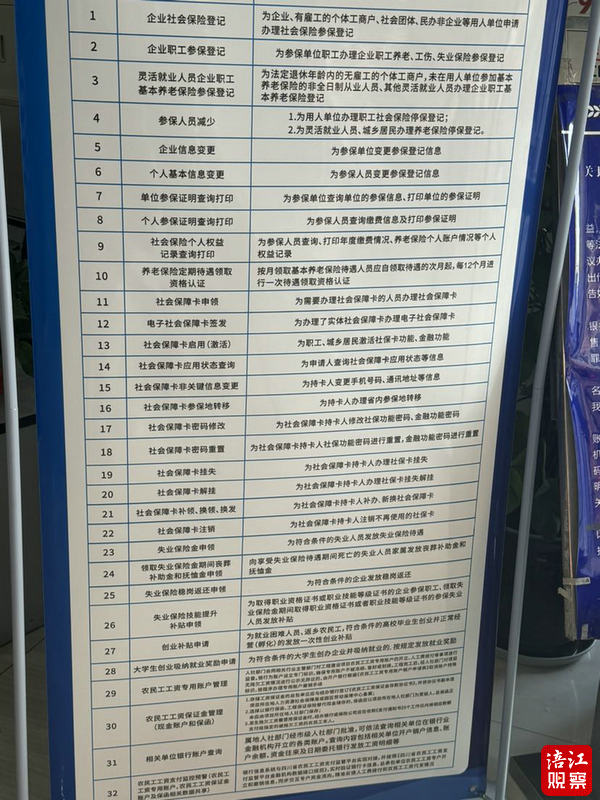 1 企业社会保险登记 为企业、有雇工的个体工商户、社会团体、民办非企业等用人单位申请
办理社会保险参保登记
2 企业职工参保登记 为参保单位职工办理企业职工养老、工伤、失业保险参保登记
3 灵活就业人员企业职工
基本养老保险参保登记
为法定退休年龄内的无雇工的个体工商户,未在用人单位参加基本
养老保险的非全日制从业人员、其他灵活就业人员办理企业职工基
本养老保险登记
4 参保人员减少 1.为用人单位办理职工社会保险停保登记;
2.为灵活就业人员、城乡居民办理养老保险停保登记。
5 企业信息变更 为参保单位变更参保登记信息
6 个人基本信息变更 为参保人员变更参保登记信息
7 单位参保证明查询打印 为参保单位查询单位的参保信息、打印单位的参保证明
8 个人参保证明查询打印 为参保人员查询缴费信息及打印参保证明
9 社会保险个人权益
记录查询打印
为参保人员查询、打印年度缴费情况、养老保险个人账户情况等个人
权益记录
10 养老保险定期待遇领取
资格认证
按月领取基本养老保险待遇人员应自领取待遇的次月起,每12个月进
行一次待遇领取资格认证
11 社会保障卡申领 为需要办理社会保障卡的人员办理社会保障卡
12 电子社会保障卡签发 为办理了实体社会保障卡办理电子社会保障卡
13 社会保障卡启用(激活) 为职工、城乡居民激活社保卡功能、金融功能
14 社会保障卡应用状态查询 为申请人查询社会保障卡应用状态等信息
15 社会保障卡非关键信息变更 为持卡人变更手机号码、通讯地址等信息
16 社会保障卡参保地转移 为持卡人办理省内参保地转移
17 社会保障卡密码修改 为社会保障卡持卡人修改社保功能密码、金融功能密码
18 社会保障卡密码重置 为社会保障卡持卡人社保功能密码进行重置,金融功能密码进行重置
19 社会保障卡挂失 为社会保障卡持卡人办理社保卡挂失
20 社会保障卡解挂 为社会保障卡持卡人办理社保卡挂失解挂
21 社会保障卡补领、换领、换发 为社会保障卡持卡人补办、新换社会保障卡
22 社会保障卡注销 为社会保障卡持卡人注销不再使用的社保卡
23 失业保险金申领 为符合条件的失业人员发放失业保险待遇
24 领取失业保险金期间丧葬
补助金和抚恤金申领
向享受失业保险待遇期间死亡的失业人员家属发放丧葬补助金和
抚恤金
25 失业保险稳岗返还申领 为符合条件的企业发放稳岗返还
26 失业保险技能提升
补贴申领
为取得职业资格证书或职业技能等级证书的企业参保职工、领取失
业保险金期间取得职业资格证书或者职业技能等级证书的参保失业
人员发放补贴
27 创业补贴申请 为就业困难人员、返乡农民工,符合条件的高校毕业生创业并正常经
营(孵化)的发放一次性创业补贴
28 大学生创业吸纳就业奖励申请 为符合条件的大学生创办企业并吸纳就业的,按规定发放就业奖励
29 农民工工资专用账户管理
30 农民工工资保证金管理
(现金账户和保函)
31 相关单位银行账户查询 属地人社部门经市级人社部门批准,可依法查询相关单位在银行业
金融机构开立的各类账户。查询内容包括相关单位开户销户信息、账
户余额、资金往来及日期委托银行发放工资明细等
32 农民工工资支付监控预警(农民工
工资专用账户、农民工工资保证金
账户及保函相关数据共享)
涪江
观察